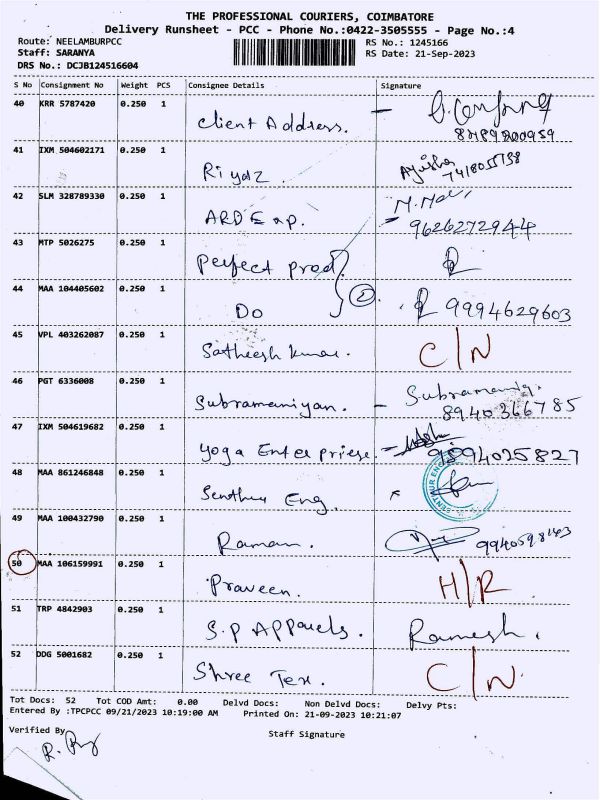 THE PROFESSIONAL COURIERS, COIMBATORE
Delivery Runsheet - PCC - Phone No.:0422-3505555 - Page No.:4
Route: NEELAMBURPCC RS No.: 1245166
Staff: SARANYA RS Date: 21-Sep-2023
DRS No.: DCJB124516604
S No Consignment No Weight PCS Consignee Details Signature
40 KRR 5787420 0.250 1 Client Address. -
8489800959
41 IXM 504602171 0.250 1 Riyaz. Ayisha
7418055758
42 SLM 328789330 0.250 1 ARD Exp. -
9626272944
43 MTP 5026275 0.250 1 Perfect prod.
44 MAA 104405602 0.250 1 Do 2 9994629603
45 VPL 403262087 0.250 1 Satheesh kumar. C/N
46 PGT 6336008 0.250 1 Subramaniyan. - Subramaniy.
8940366785
47 IXM 504619682 0.250 1 Yoga Enterpriese. -
9894025827
48 MAA 861246848 0.250 1 Eng. x
49 MAA 100432790 0.250 1 Raman. 9940598143
50 MAA 106159991 0.250 1 Praveen. H/R
51 TRP 4842903 0.250 1 S.P Apparels. Ramesh.
52 DDG 5001682 0.250 1 Shree Tex. C/N
Tot Docs: 52 Tot COD Amt: 0.00 Delvd Docs: Non Delvd Docs: Delvy Pts:
Entered By :TPCPCC 09/21/2023 10:19:00 AM Printed On: 21-09-2023 10:21:07
Verified By Staff Signature